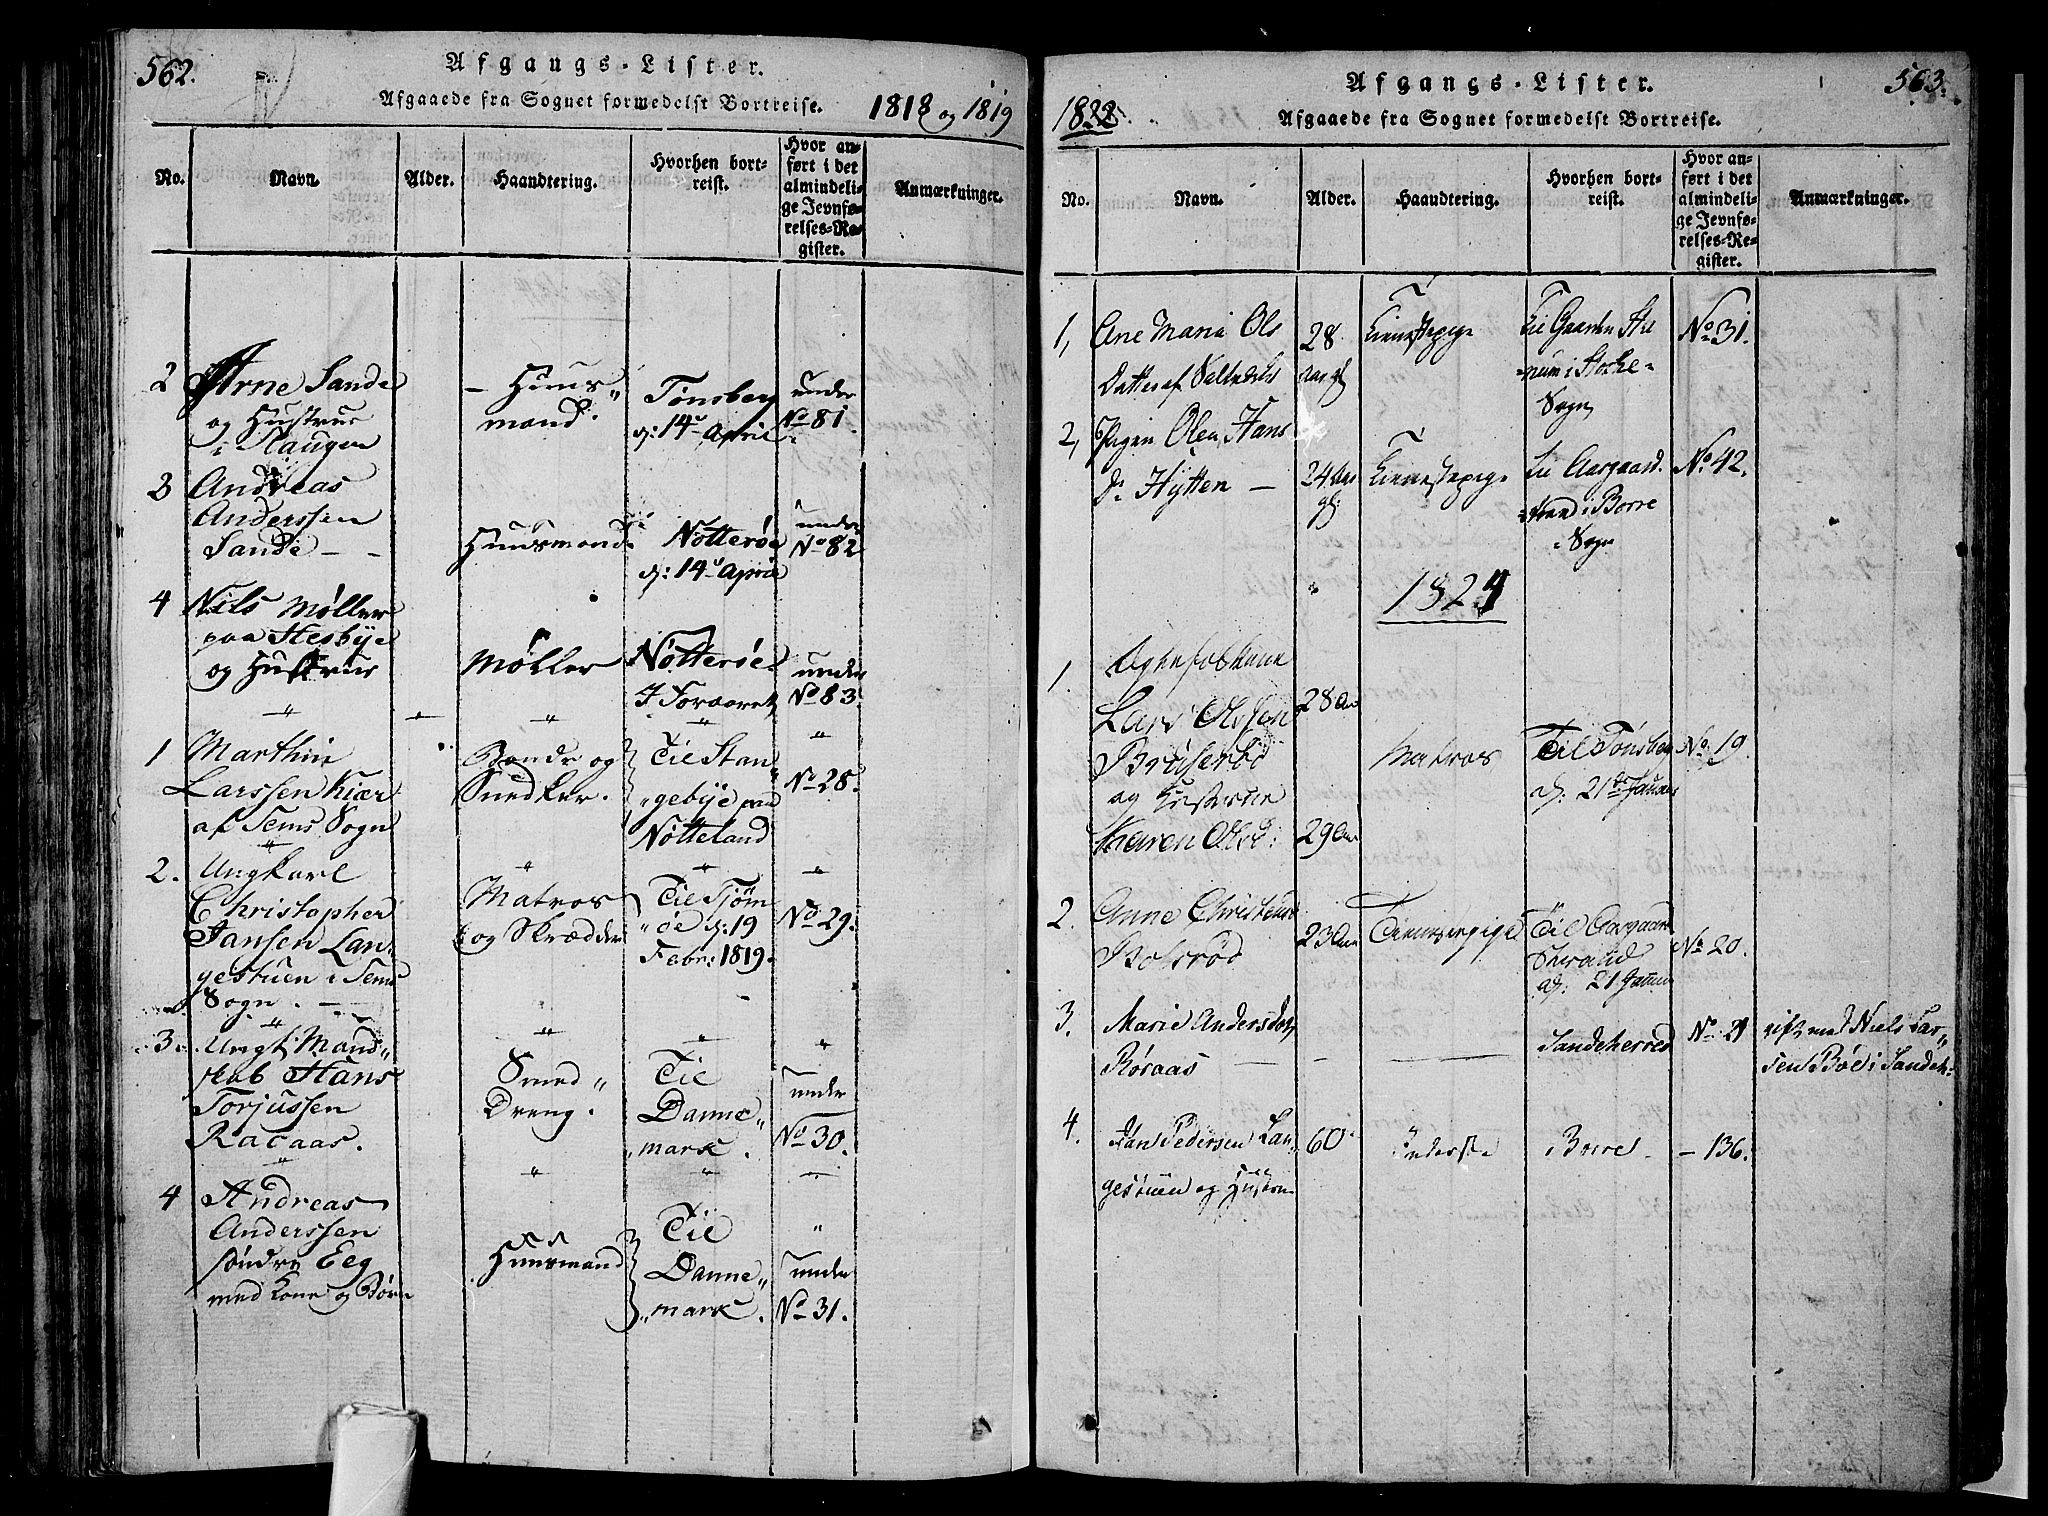 562.
Afgangs-Lister.
Afgaaede fra Sognet formedelst Bortreise.
1818 og 1819
No.
Navn.
Alder.
Haandtering.
Hvorhen bort-
reist.
Hvor an-
ført i det
almindeli-
ge Jevnfø-
relses-Re-
gister.
Anmærkninger.
2 Arne Sande
og Hustrue
i Haugen
- Huus"
mand.
Tønsberg
d: 14de April
under
No 81.
3 Andreas
Anderssen
Sande - -
Huusmand.
Nøtterøe
d: 14de April
under
No 82
4 Nils Møller
paa Hesbye
og Hustrue
Møller
Nøtterøe.
I Foraaret
under
No 83.
1 Marthin
Larssen Kiær
af Sems Sogn
Bonde og
Snedker.
Til Stan"
"gebye paa
Nøtteland
No 28.
2. Ungkarl
Christopher
Jansen Lan"
gestuen i Sems
Sogn. -
Matros
og Skrædder
Til Tjøm
"øe d: 19
Febr: 1819.
No 29.
3. Ungt Mand"
skab Hans
Torjussen
Racaas.
Smed"
Dreng.
Til
Danne"
"mark.
under
No 30.
4 Andreas
Anderssen
søndre Eeg
med Kone og Børn
Huusmand
Til
Danne"
"mark.
under
No 31.
563.
Afgangs-Lister.
1822.
Afgaaede fra Sognet formedelst Bortreise.
No.
Navn.
Alder.
Haandtering.
Hvorhen bort-
reist.
Hvor an-
ført i det
almindeli-
ge Jevnfø-
relses-Re-
gister.
Anmærkninger.
1, Ane Maria Ols
Datter af
28
Aar gl
Tienestepige
til Gaarden
i Stokke-
Sogn
No 31.
2, Pigen Olea Hans
Dr Hytten -
24 Aar
gl:
Tienestepige
til Aasgaard-
strand i Borre
Sogn
No 42.
1824
1.
Ægtefolkene
Lars Olssen
Bruserød
og Hustrue
Karen Olsd:
28 Aar
29 Aar
Matros
Til Tønsberg
d: 21de Januar
No 19.
2. Anne Christens
Bolsrød
23 Aar
Tienestepige
Til Aasgaard
Strand
d: 21 Januar
No 20.
3. Marie Andersdat
Røraas - - -
Sandeherred
No 21
gift med Niels Lar"
sen Bøe i Sandeh:
4. Jan Pedersen Lan"
gestuen og Hustrue
60.
Inderste
Borre -
- 136.